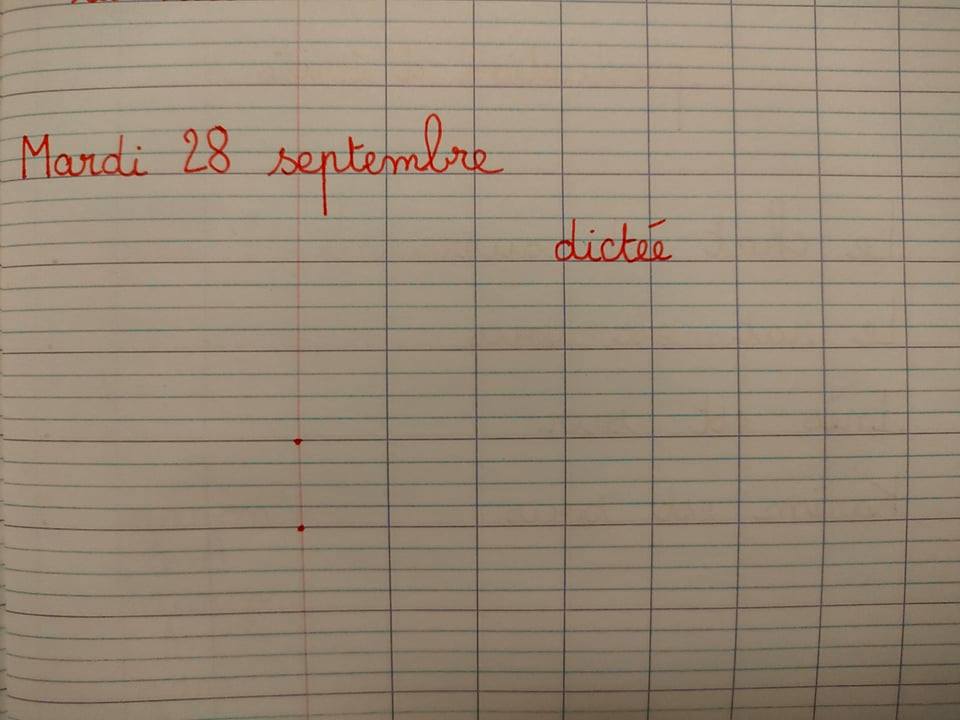 Mardi 28 septembre
dictée